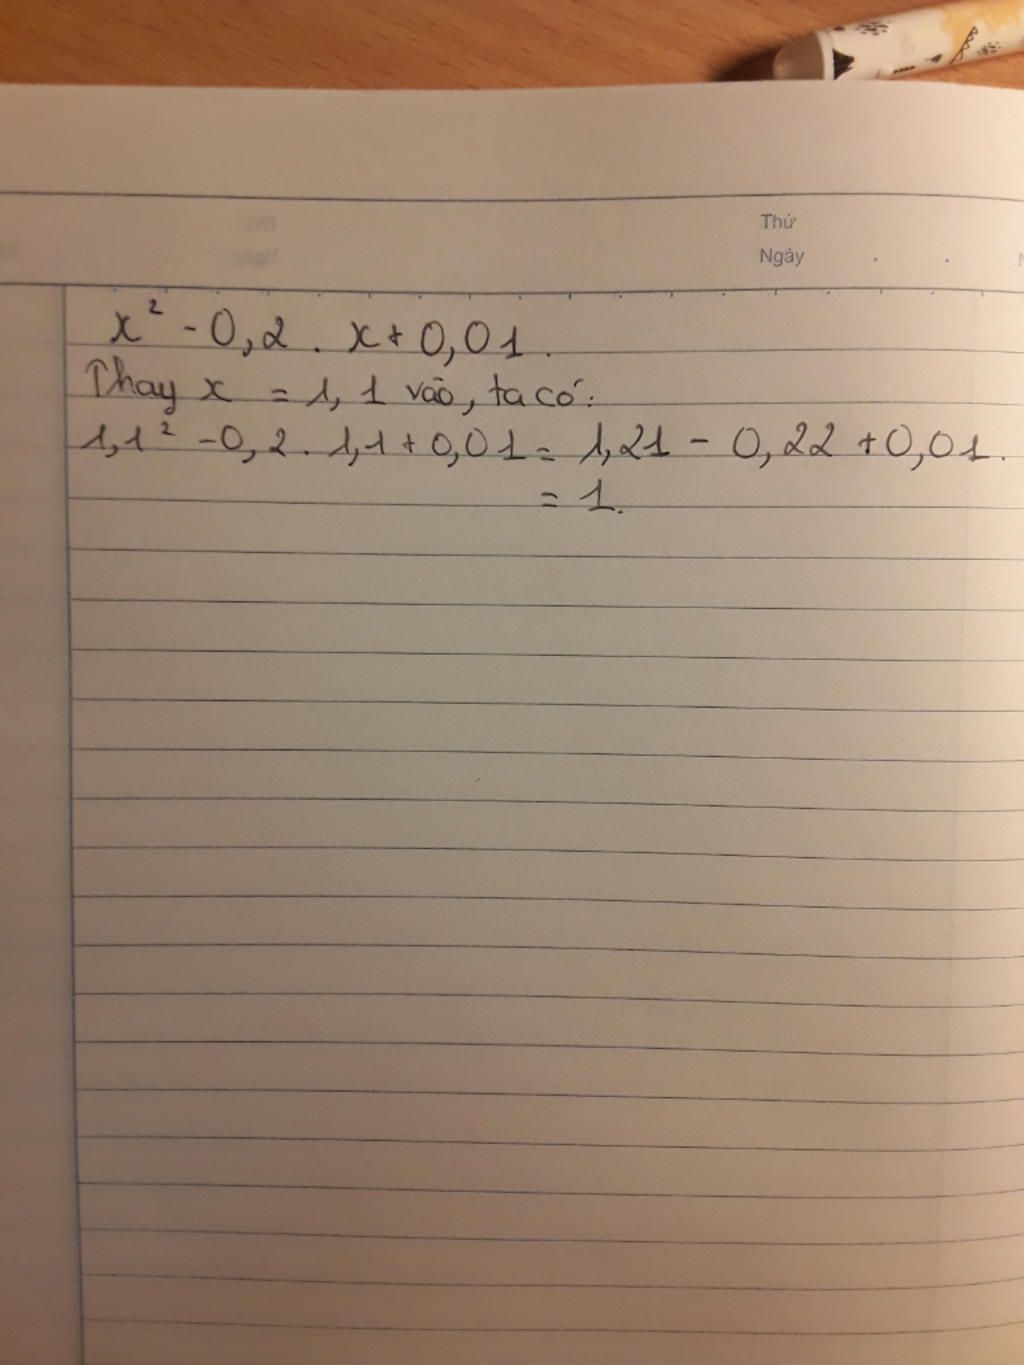 Thứ
Ngày
x² - 0,2 . x + 0,01.
Thay x = 1,1 vào, ta có:
1,1² - 0,2 . 1,1 + 0,01 = 1,21 - 0,22 + 0,01.
= 1.